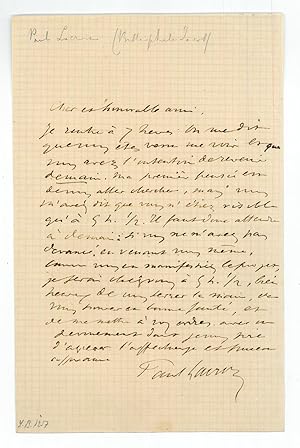 Paul Lacroix (Bibliophile Jacob)
Cher et honorable ami,
Je rentre à 7 heures. On me dit
que vous êtes venu me voir et que
vous avez l'intention de revenir
demain. Ma première pensée est
de vous aller chercher, mais vous
m'avez dit que vous n'êtes visible
qu'à 5 h. 1/2. Il faut donc attendre
à demain: si vous ne m'avez pas
devancé, en venant vous même,
comme vous en manifestiez le projet,
je serai chez vous à 5 h. 1/2, bien
heureux de vous serrer la main, de
vous trouver en bonne santé, et
de me mettre à vos ordres, avec un
dévouement dont je vous prie
d'agréer l'affectueuse et sincère
Paul Lacroix